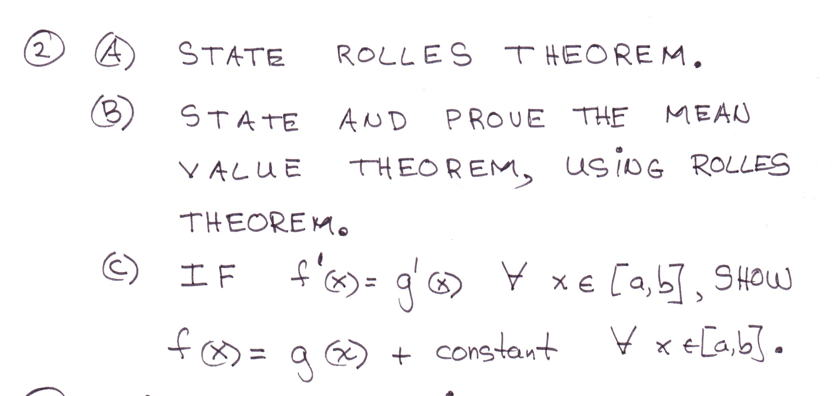 ② Ⓐ STATE ROLLES THEOREM.
Ⓑ STATE AND PROVE THE MEAN
VALUE THEOREM, USING ROLLES
THEOREM.
Ⓒ IF f'(x) = g'(x) ∀ x ∈ [a,b], SHOW
f(x) = g(x) + constant ∀ x ∈ [a,b].